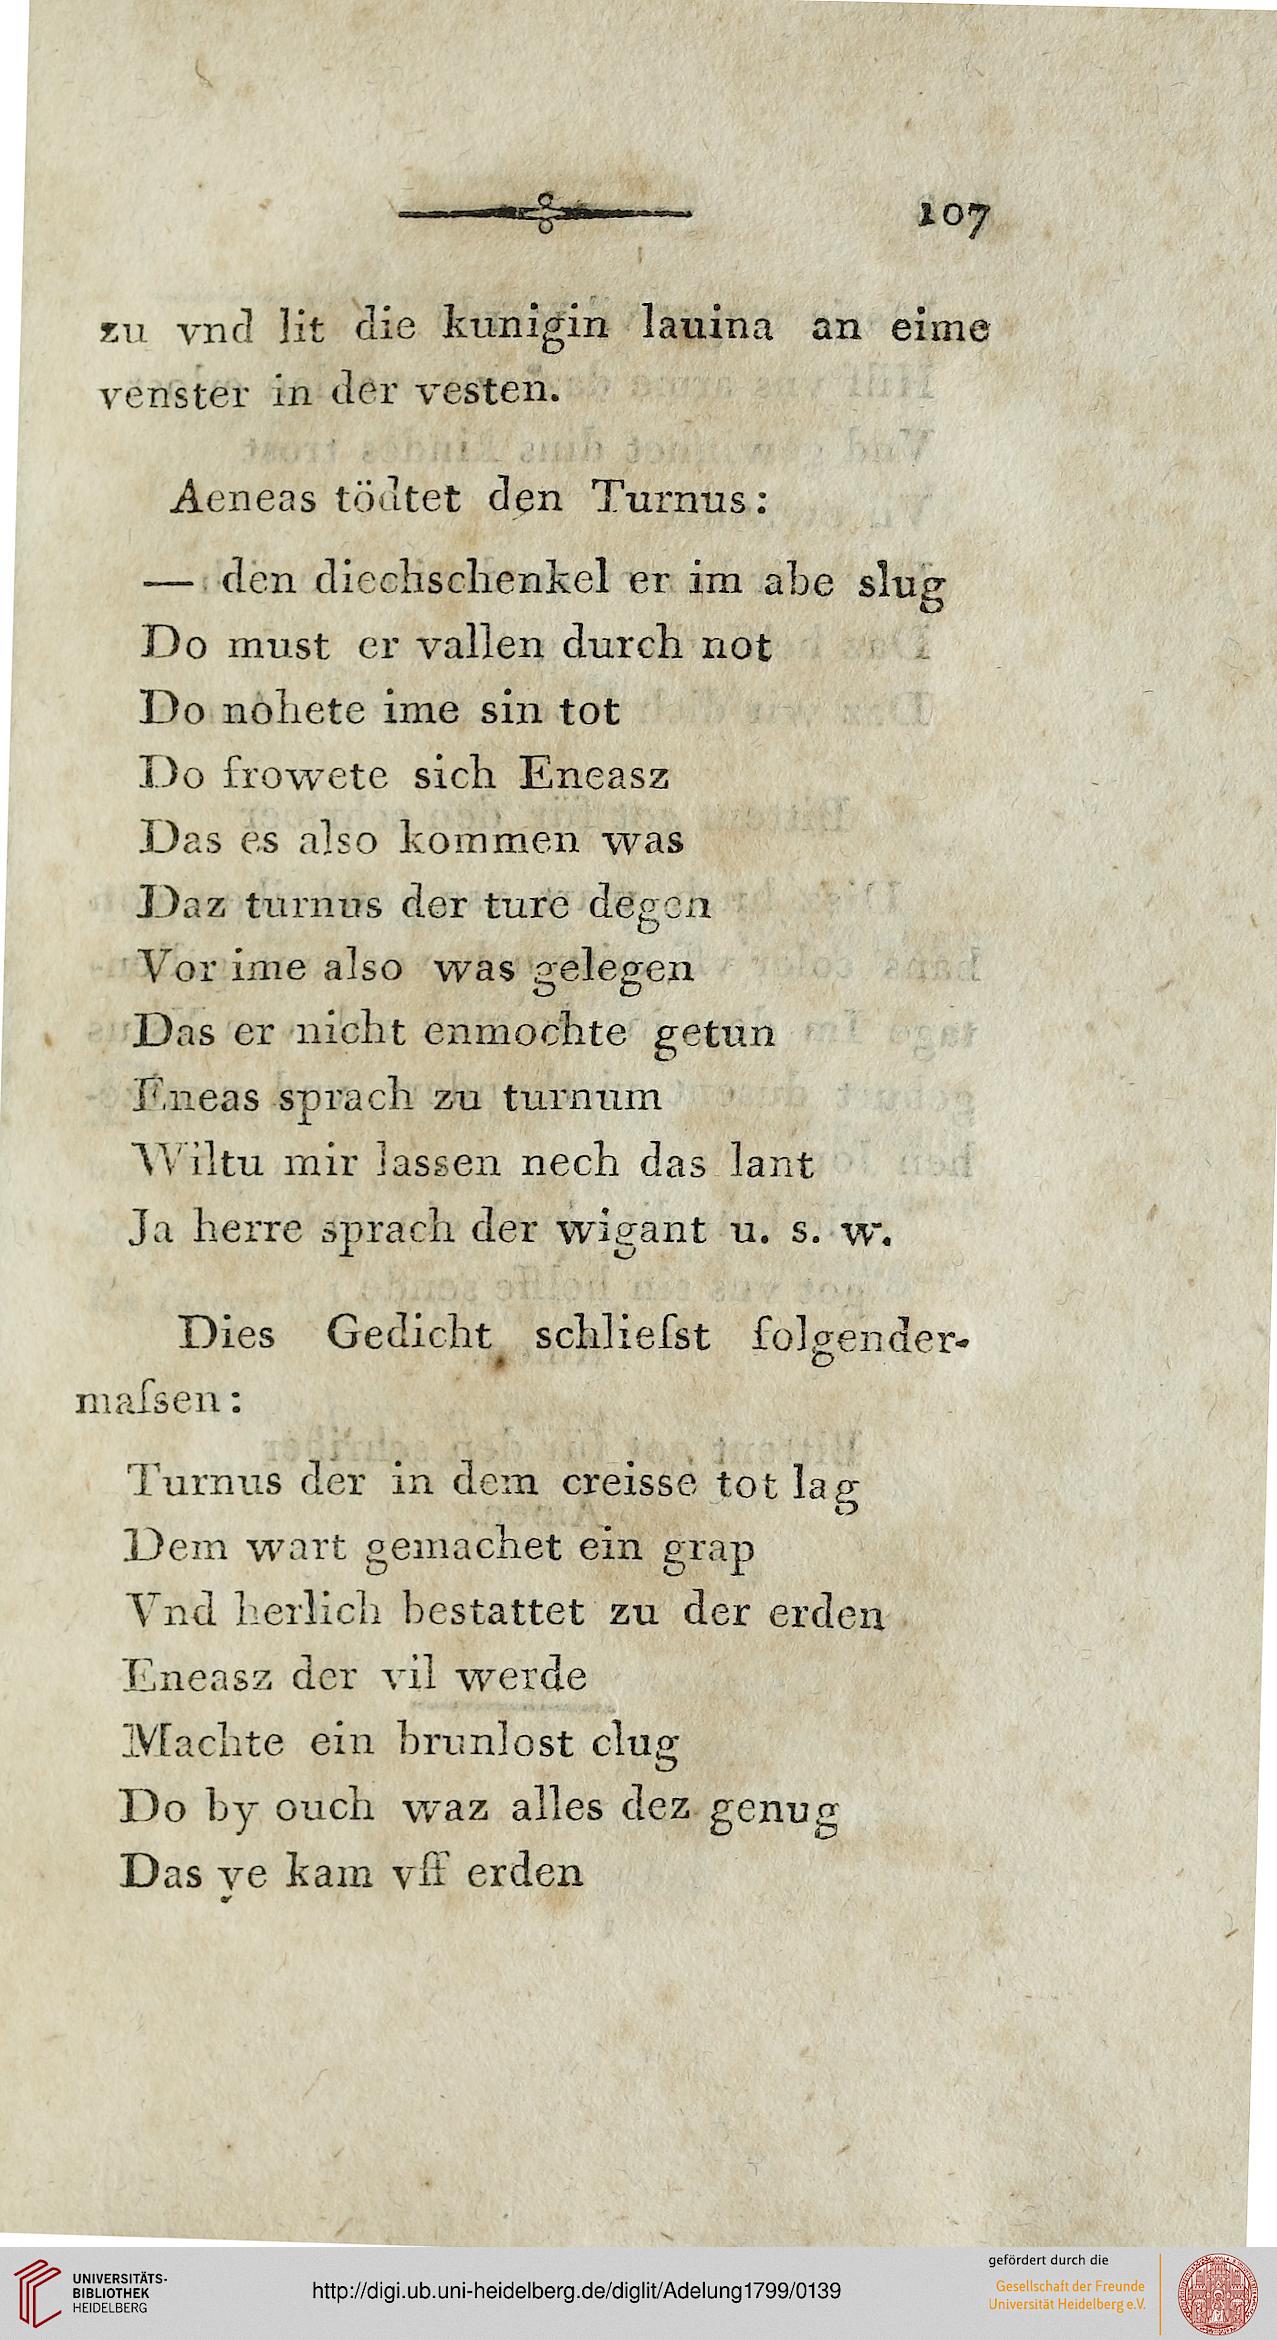 107
zu vnd lit die kunigin lauina an eime
venster in der vesten.
Aeneas tödtet den Turnus:
— den diechschenkel er im abe slug
Do must er vallen durch not
Do nohete ime sin tot
Do frowete sich Eneasz
Das es also kommen was
Daz turnus der ture degen
Vor ime also was gelegen
Das er nicht enmochte getun
Eneas sprach zu turnum
Wiltu mir lassen nech das lant
Ja herre sprach der wigant u. s. w.
Dies Gedicht schlieſst folgender-
maſsen:
Turnus der in dem creisse tot lag
Dem wart gemachet ein grap
Vnd herlich bestattet zu der erden
Eneasz der vil werde
Machte ein brunlost clug
Do by ouch waz alles dez genug
Das ye kam vff erden
UNIVERSITÄTS-
BIBLIOTHEK
HEIDELBERG
http://digi.ub.uni-heidelberg.de/diglit/Adelung1799/0139
gefördert durch die
Gesellschaft der Freunde
Universität Heidelberg e.V.